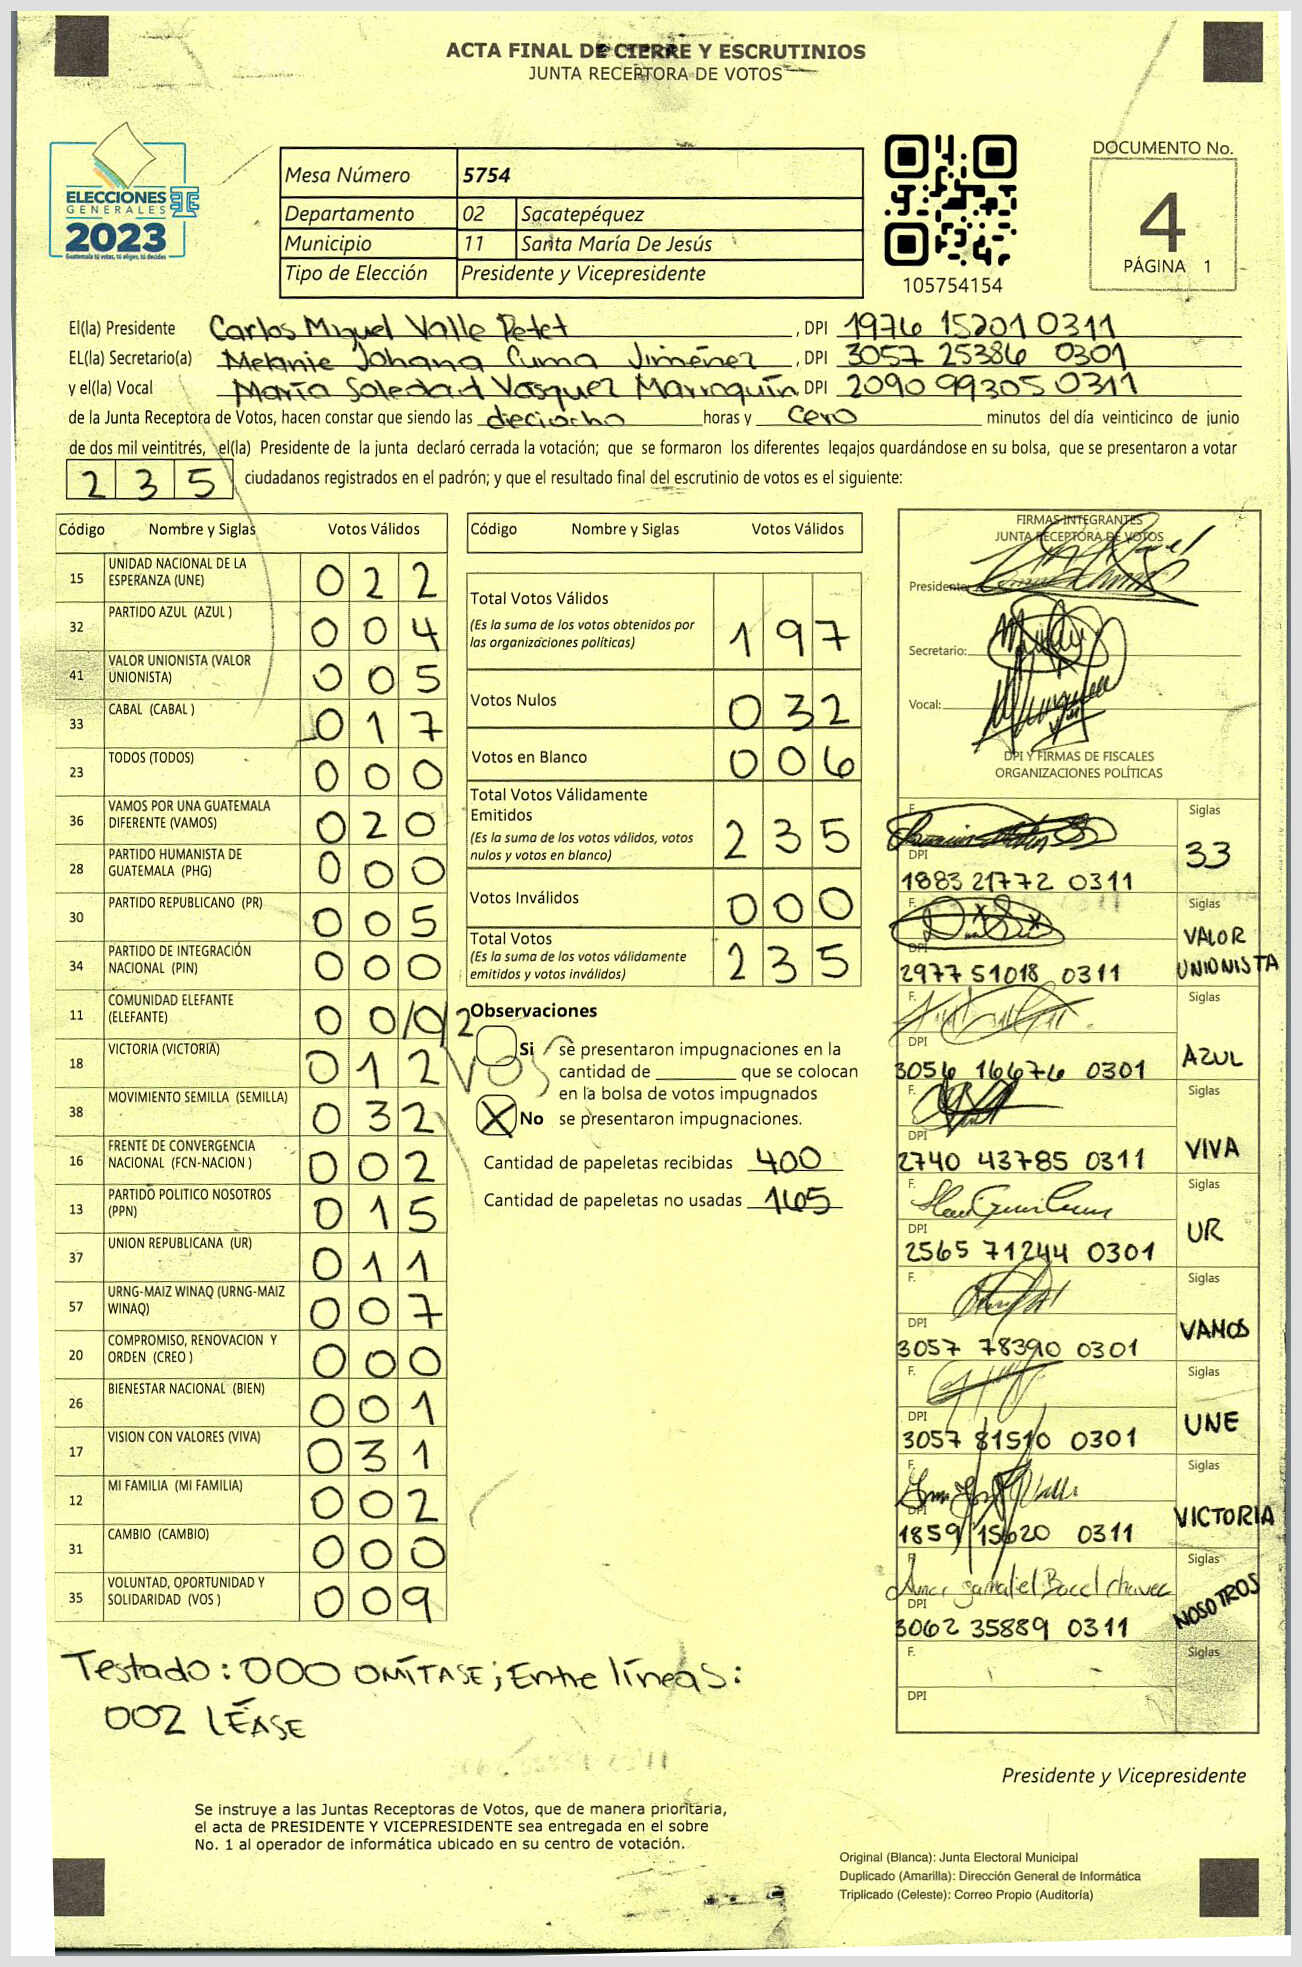 ACTA FINAL DE CIERRE Y ESCRUTINIOS
JUNTA RECEPTORA DE VOTOS
ELECCIONES
GENERALES
2023
Guatemala tú votas, tú eliges, tú decides
Mesa Número 5754
Departamento 02 Sacatepéquez
Municipio 11 Santa María De Jesús
Tipo de Elección Presidente y Vicepresidente
105754154
DOCUMENTO No.
4
PÁGINA 1
El(la) Presidente Carlos Miguel Valle Petet, DPI 1976 15201 0311
EL(la) Secretario(a) Melanie Johana Cuma Jiménez, DPI 3057 25386 0301
y el(la) Vocal María Soledad Vasquez Marroquín, DPI 2090 99305 0311
de la Junta Receptora de Votos, hacen constar que siendo las dieciocho horas y cero minutos del día veinticinco de junio
de dos mil veintitrés, el(la) Presidente de la junta declaró cerrada la votación; que se formaron los diferentes legajos guardándose en su bolsa, que se presentaron a votar
235 ciudadanos registrados en el padrón; y que el resultado final del escrutinio de votos es el siguiente:
Código Nombre y Siglas Votos Válidos
15 UNIDAD NACIONAL DE LA ESPERANZA (UNE) 022
32 PARTIDO AZUL (AZUL ) 004
41 VALOR UNIONISTA (VALOR UNIONISTA) 005
33 CABAL (CABAL ) 017
23 TODOS (TODOS) 000
36 VAMOS POR UNA GUATEMALA DIFERENTE (VAMOS) 020
28 PARTIDO HUMANISTA DE GUATEMALA (PHG) 000
30 PARTIDO REPUBLICANO (PR) 005
34 PARTIDO DE INTEGRACIÓN NACIONAL (PIN) 000
11 COMUNIDAD ELEFANTE (ELEFANTE) 00/0/2
18 VICTORIA (VICTORIA) 012
38 MOVIMIENTO SEMILLA (SEMILLA) 032
16 FRENTE DE CONVERGENCIA NACIONAL (FCN-NACION ) 002
13 PARTIDO POLITICO NOSOTROS (PPN) 015
37 UNION REPUBLICANA (UR) 011
57 URNG-MAIZ WINAQ (URNG-MAIZ WINAQ) 007
20 COMPROMISO, RENOVACION Y ORDEN (CREO ) 000
26 BIENESTAR NACIONAL (BIEN) 001
17 VISION CON VALORES (VIVA) 031
12 MI FAMILIA (MI FAMILIA) 002
31 CAMBIO (CAMBIO) 000
35 VOLUNTAD, OPORTUNIDAD Y SOLIDARIDAD (VOS ) 009
Código Nombre y Siglas Votos Válidos
Total Votos Válidos 197
(Es la suma de los votos obtenidos por
las organizaciones políticas)
Votos Nulos 032
Votos en Blanco 006
Total Votos Válidamente
Emitidos 235
(Es la suma de los votos válidos, votos
nulos y votos en blanco)
Votos Inválidos 000
Total Votos 235
(Es la suma de los votos válidamente
emitidos y votos inválidos)
Observaciones
VOS
Si se presentaron impugnaciones en la
cantidad de ________ que se colocan
en la bolsa de votos impugnados
X No se presentaron impugnaciones.
Cantidad de papeletas recibidas 400
Cantidad de papeletas no usadas 165
FIRMAS INTEGRANTES
JUNTA RECEPTORA DE VOTOS
Presidente:
Secretario:
Vocal:
DPI Y FIRMAS DE FISCALES
ORGANIZACIONES POLÍTICAS
F. Siglas
33
DPI
1883 21772 0311
F. Siglas
VALOR
UNIONISTA
DPI
2977 51018 0311
F. Siglas
AZUL
DPI
3056 16676 0301
F. Siglas
VIVA
DPI
2740 43785 0311
F. Siglas
UR
DPI
2565 71244 0301
F. Siglas
VAMOS
DPI
3057 78390 0301
F. Siglas
UNE
DPI
3057 81510 0301
F. Siglas
VICTORIA
DPI
1859 15620 0311
F. Siglas
gamaliel
NOSOTROS
DPI
3062 35889 0311
F. Siglas
DPI
Testado: 000 OMÍTASE; Entre líneas:
002 LÉASE
Presidente y Vicepresidente
Se instruye a las Juntas Receptoras de Votos, que de manera prioritaria,
el acta de PRESIDENTE Y VICEPRESIDENTE sea entregada en el sobre
No. 1 al operador de informática ubicado en su centro de votación.
Original (Blanca): Junta Electoral Municipal
Duplicado (Amarilla): Dirección General de Informática
Triplicado (Celeste): Correo Propio (Auditoría)